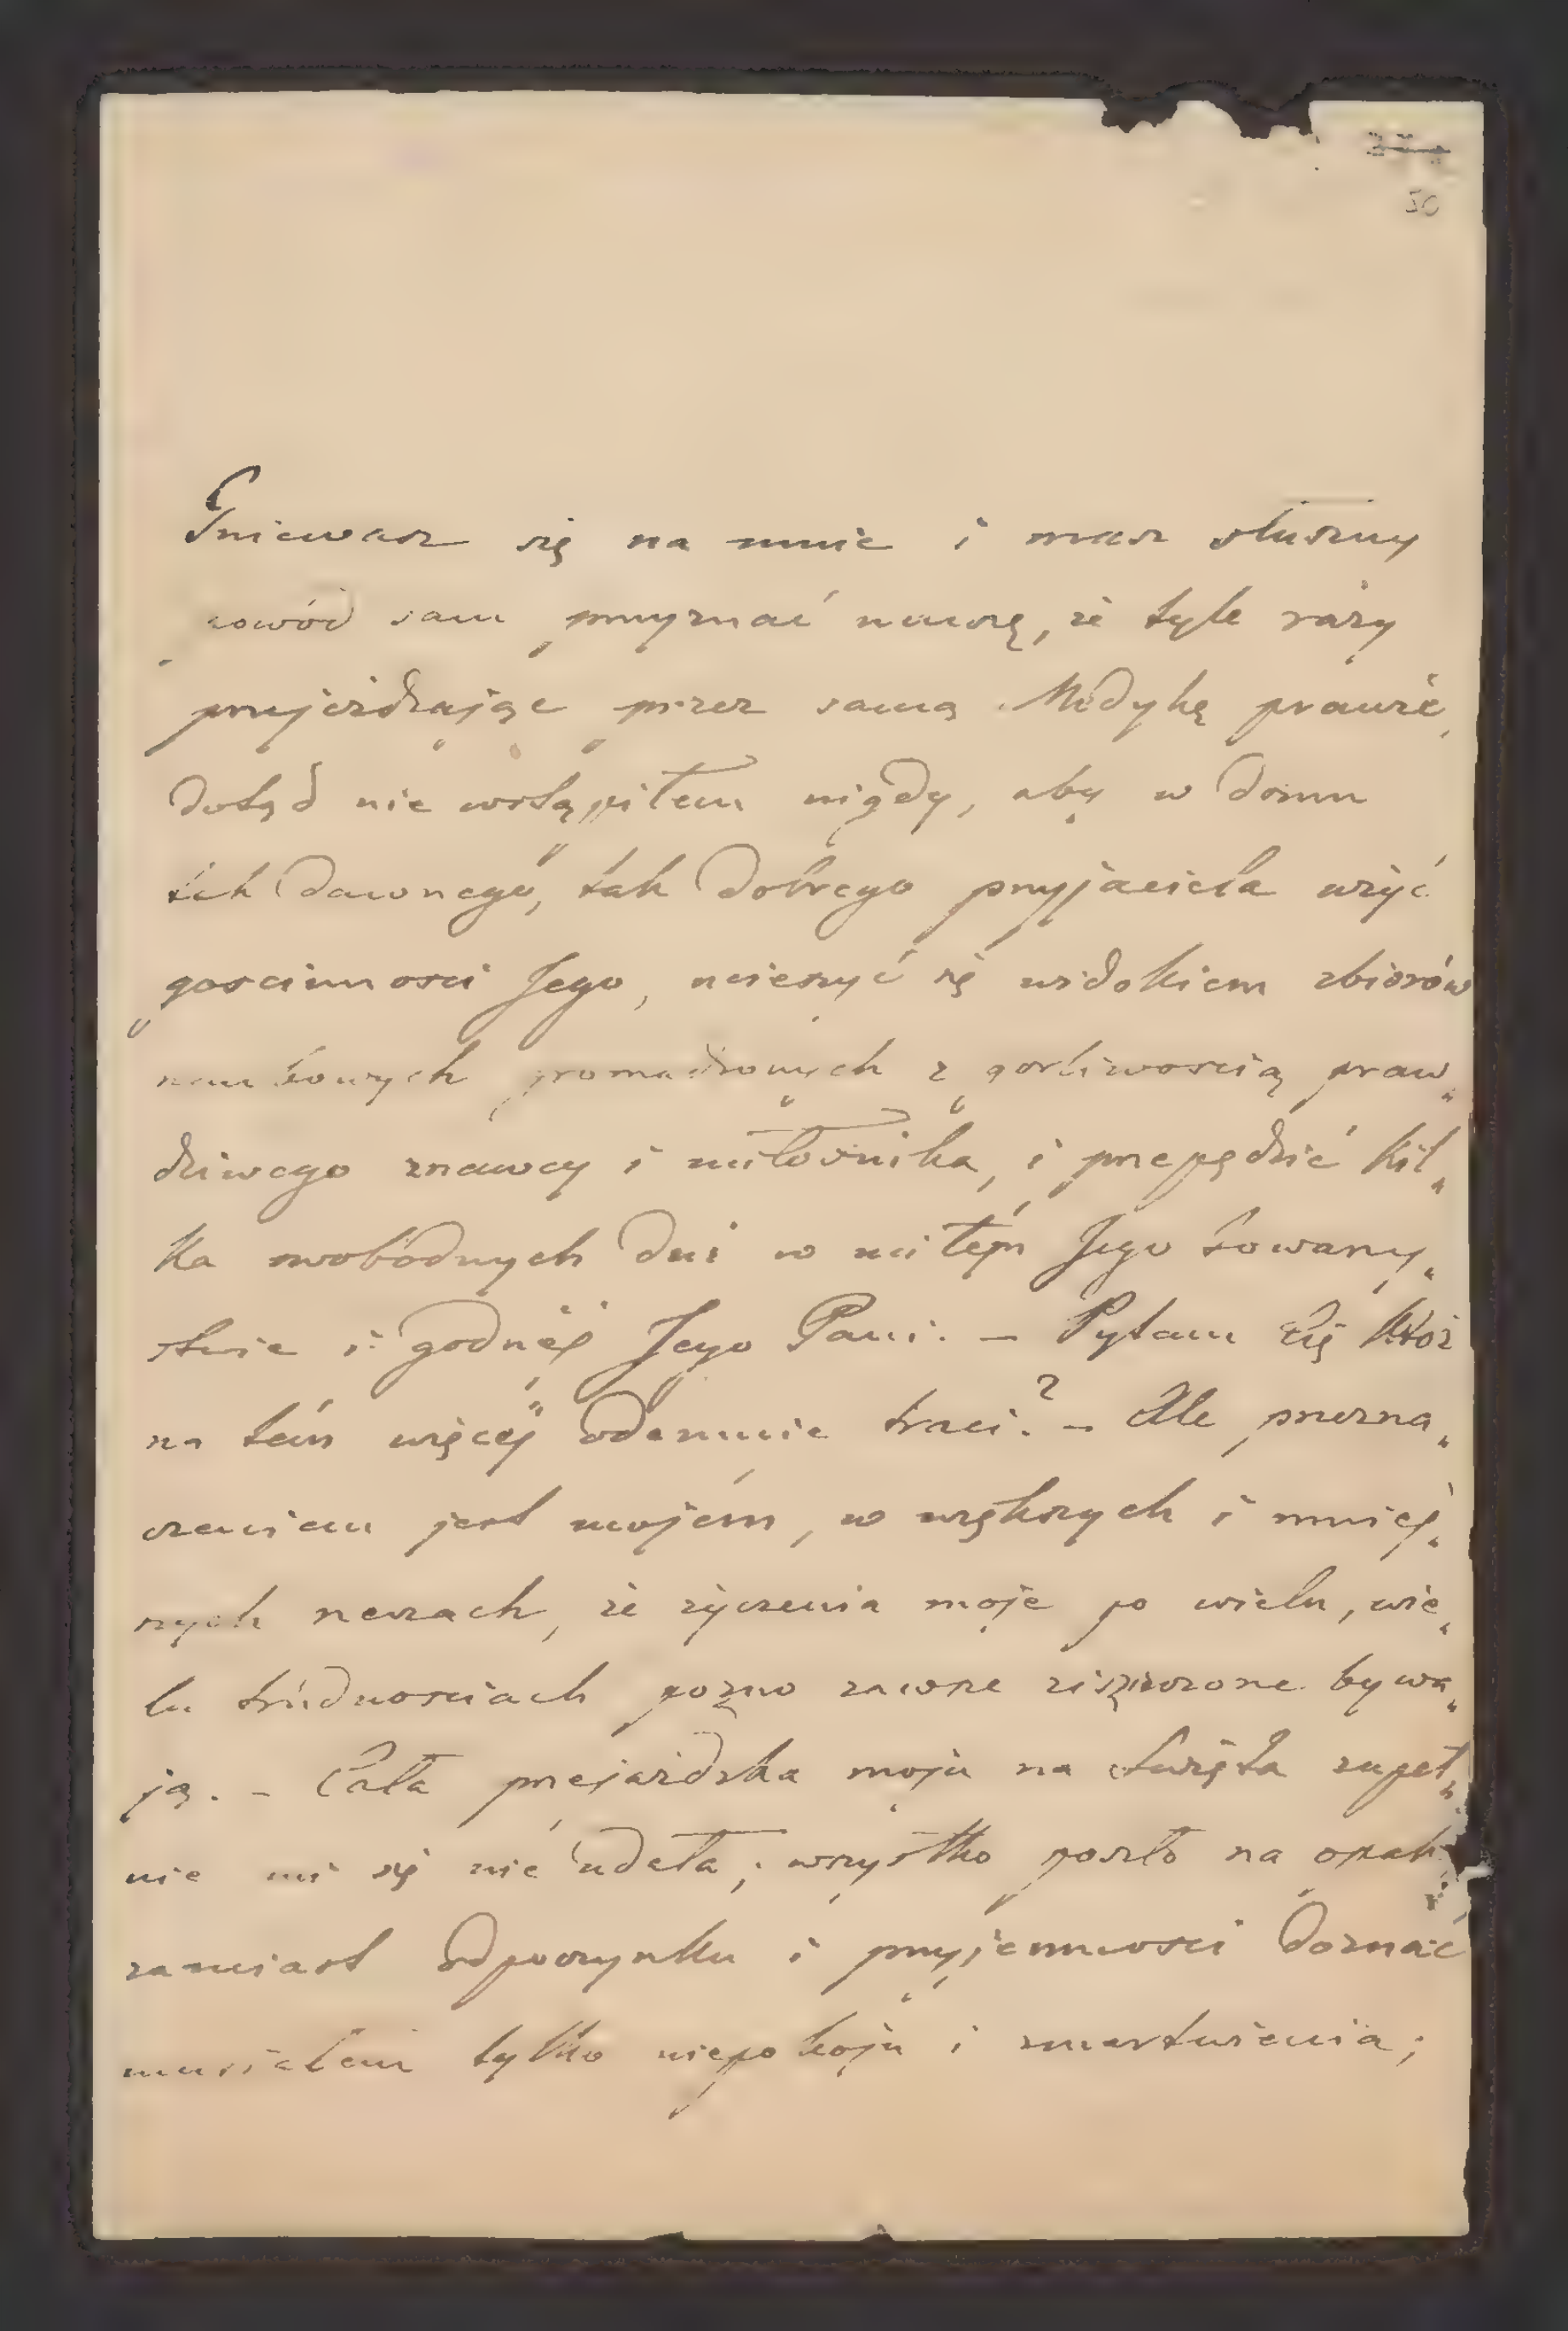 50
Gniewasz się na mnie i masz słuszny
powód sam przyznać muszę, że tyle razy
przejeżdżając przez samą Medykę prawie,
dotąd nie wstąpiłem nigdy, aby w domu
tak dawnego, tak dobrego przyjaciela użyć
gościnności Jego, ucieszyć się widokiem zbiorów
naukowych gromadzonych z gorliwością praw„
dziwego znawcy i miłośnika, i przepędzić kil„
ka swobodnych dni w miłém Jego towarzy„
stwie i godnéj Jego Pani. – Pytam Cię któż
na tém więcéj odemnie traci? – Ale przezna„
czeniem jest mojém, w większych i mniej„
szych rzeczach, że życzenia moje po wielu, wie„
lu trudnościach pozno zawsze ziszczone bywa„
ją. – Cała przejażdzka moja na święta zupeł„
nie mi się nie udała; wszystko poszło na opak
zamiast odpoczynku i przyjemności doznać
musiałem tylko niepokoju i zmartwienia;